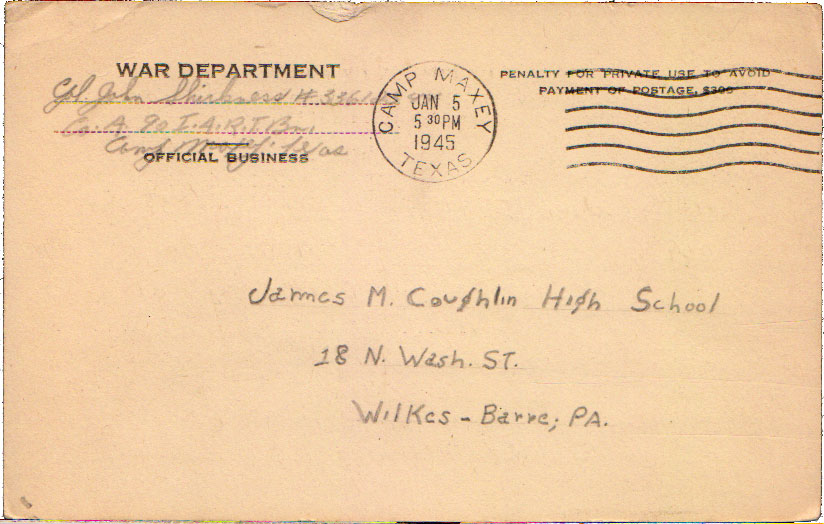 WAR DEPARTMENT
Cpl. John
Co. A. 90 I.A.R.T. Bn.
Camp Maxey, Texas
OFFICIAL BUSINESS
CAMP MAXEY
JAN 5
5 30 PM
1945
TEXAS
PENALTY FOR PRIVATE USE TO AVOID
PAYMENT OF POSTAGE, $300
James M. Coughlin High School
18 N. Wash. ST.
Wilkes-Barre, PA.